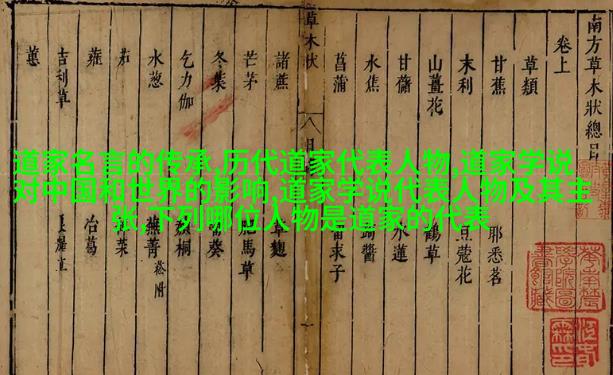 道家名言的传承,历代道家代表人物,道家学说
对中国和世界的影响,道家学说代表人物及其主
张,下列哪位人物是道家的代表
南方草木狀總目
卷上
草類
甘蕉 耶悉茗
末利 豆蔻花
山薑花 鶴草
甘藷 水蓮
水蕉 醬
菖蒲 留求子
草木狀 八
諸蔗 草麴
芒茅 馬草
冬 葵
乞力伽 桐
水葱 蕪菁 菘附
茄 菜
蕹 冶葛
吉利草
蕙